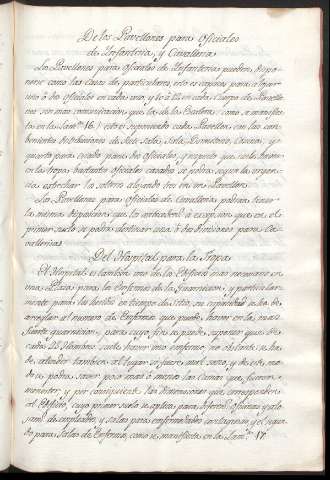 De los Pavellones para Oficiales
de Ynfanteria, y Cavalleria
Los Pavellones para oficiales de Ynfanteria pueden dispo-
nerse como las Casas de particulares, esto es capaces para alojar
uno ó dos oficiales en cada uno, y 10 ó 12 en cada Cuerpo de Pavello-
nes sin mas comunicacion que la de la Escalera: como se manifies-
ta en la Lam.ª 16. y está es suponiendo cada Pavellon con las co-
rrespondientes distribuciones de
quarto para criado para dos oficiales, y respecto que suele haver
en la tropa bastantes oficiales casados se podra segun la urgen-
cia estrechar los solteros alojando tres en un Pavellon.
Los Pavellones para Oficiales de Cavalleria podran tener
la misma disposicion que los antecedentes á excepcion que en el
primer suelo se podra destinar una ó dos divisiones para Ca-
vallerizas.
Del Hospital para la Tropa
El Hospital es tambien uno de los Edificios mas necesarios en
una Plaza para los Enfermos de la Guarnicion, y particular-
mente para los heridos en tiempo de sitio, su capacidad se ha de
arreglar al numero de Enfermos que puede haver en la mas
fuerte guarnicion, para cuyo fin se puede suponer que de
cada 25 Hombres suele haver uno enfermo, no obstante se ha
de atender tambien al lugar si fuere mal sano, y de este mo-
do se podra saver poco mas ó menos las camas que fueren
menester, y por consiguiente las dimensiones que corresponden
al Edificio, cuyo primer suelo se aplica para
de empleados, y salas para enfermedades contagiosas, y el segun-
do para Salas de Enfermos, como se manifiesta en la Lam.ª 17.